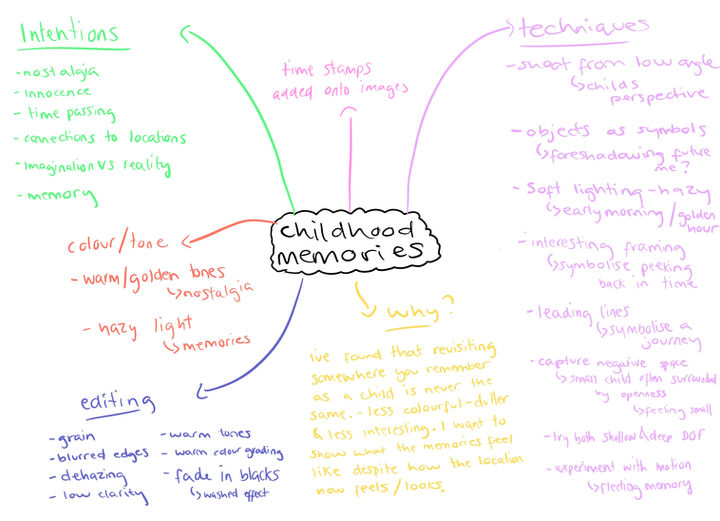 Intentions
- nostalgia
- innocence
- time passing
- connections to locations
- Imagination vs reality
- memory
time stamps
added onto images
techniques
- shoot from low angle
↳ childs
perspective
- objects as symbols
↳ foreshadowing future
me?
- Soft lighting - hazy
↳ early morning / golden
hour
- interesting framing
↳ symbolise peeking
back in time
- leading lines
↳ symbolise a
journey
- capture negative space
↳ small child often surrounded
by openness
↳ feeling small
- try both shallow & deep DOF
- experiment with motion
↳ fleeting memory
childhood
memories
colour/tone
- warm/golden tones
↳ nostalgia
- hazy light
↳ memories
editing
- grain
- blurred edges
- dehazing
- low clarity
- warm tones
- warm colour grading
- fade in blacks
↳ washed effect
why?
ive found that revisiting
somewhere you remember
as a child is never the
same. - less colourful - duller
& less interesting. I want to
show what the memories feel
like despite how the location
now feels/looks.